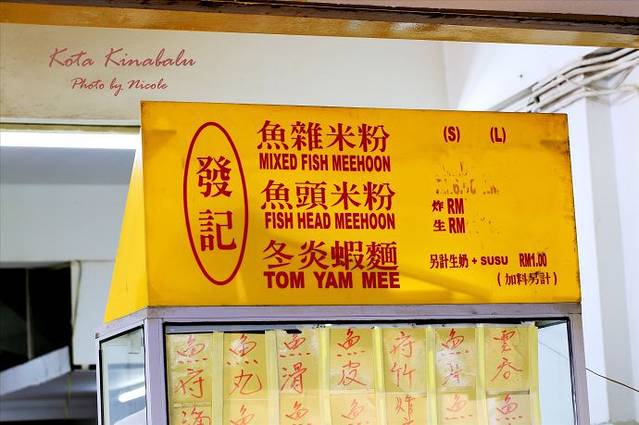 Kota Kinabalu
Photo by Nicole
發記
魚雜米粉
MIXED FISH MEEHOON
(S) (L)
魚頭米粉
FISH HEAD MEEHOON
炸 RM
生 RM
冬炎蝦麵
TOM YAM MEE
另計生奶 + SUSU RM1.00
(加料另計)
魚
魚丸
魚滑
魚皮
腐竹
魚
雲吞
魚
魚
魚
魚
魚